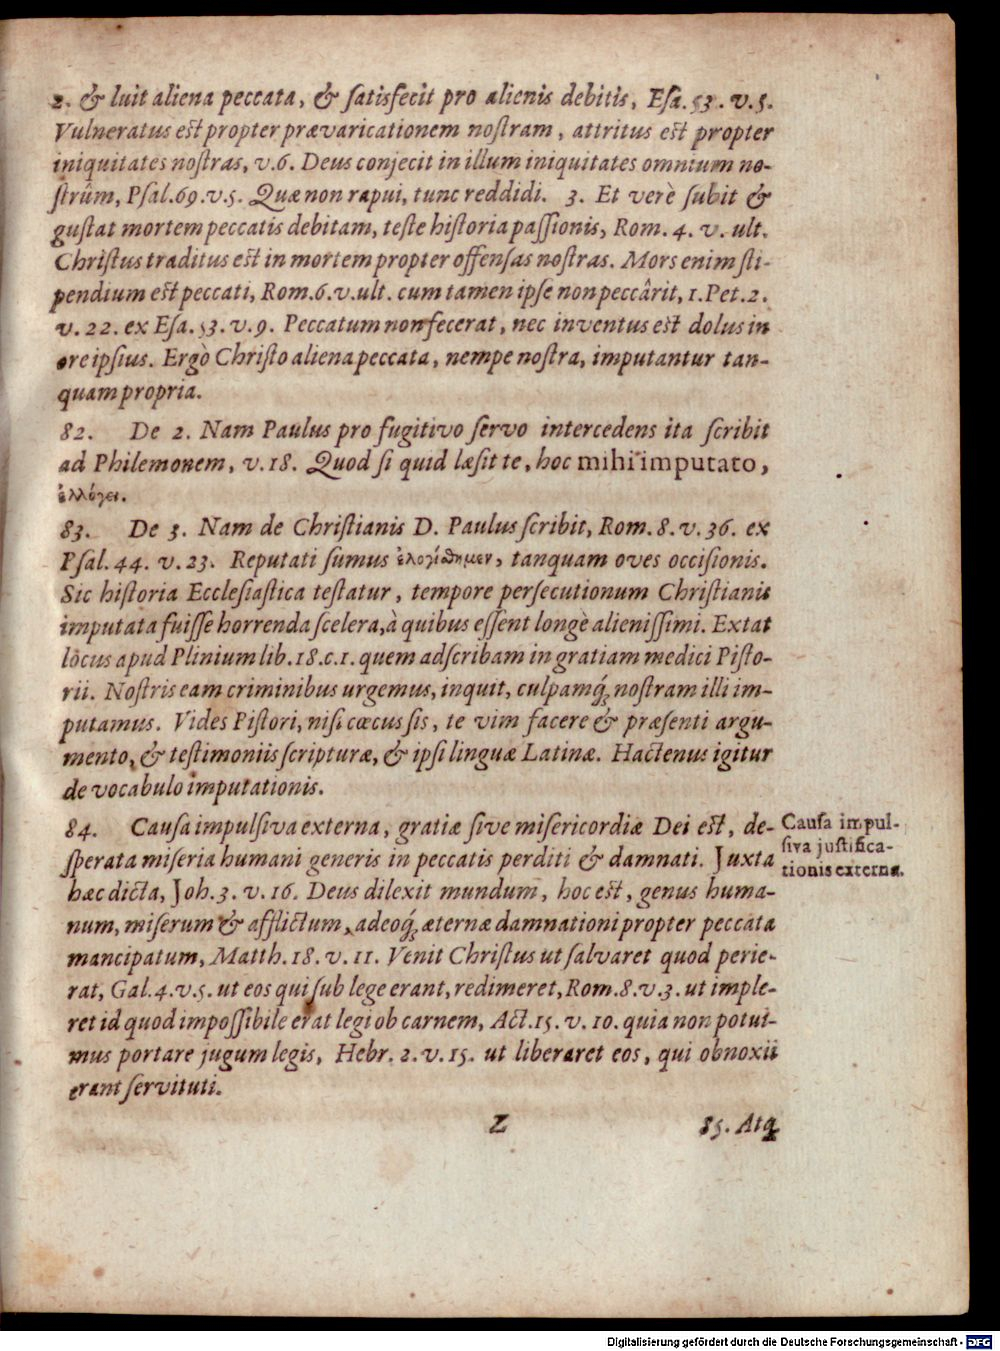 2. & luit aliena peccata, & satisfecit pro alienis debitis, Esa. 53. v. 5.
Vulneratus est propter prævaricationem nostram, attritus est propter
iniquitates nostras, v. 6. Deus conjecit in illum iniquitates omnium no-
strûm, Psal. 69. v. 5. Quæ non rapui, tunc reddidi. 3. Et verè subit &
gustat mortem peccatis debitam, teste historia passionis, Rom. 4. v. ult.
Christus traditus est in mortem propter offensas nostras. Mors enim sti-
pendium est peccati, Rom. 6. v. ult. cum tamen ipse non peccârit, 1. Pet. 2.
v. 22. ex Esa. 53. v. 9. Peccatum non fecerat, nec inventus est dolus in
ore ipsius. Ergò Christo aliena peccata, nempe nostra, imputantur tan-
quam propria.
82. De 2. Nam Paulus pro fugitivo servo intercedens ita scribit
ad Philemonem, v. 18. Quod si quid læsit te, hoc mihi imputato,
ἐλλόγει.
83. De 3. Nam de Christianis D. Paulus scribit, Rom. 8. v. 36. ex
Psal. 44. v. 23. Reputati sumus ἐλογίσθημεν, tanquam oves occisionis.
Sic historia Ecclesiastica testatur, tempore persecutionum Christianis
imputata fuisse horrenda scelera, à quibus essent longè alienissimi. Extat
locus apud Plinium lib. 18. c. 1. quem adscribam in gratiam medici Pisto-
rii. Nostris eam criminibus urgemus, inquit, culpamq́; nostram illi im-
putamus. Vides Pistori, nisi cœcus sis, te vim facere & præsenti argu-
mento, & testimoniis scripturæ, & ipsi linguæ Latinæ. Hactenus igitur
de vocabulo imputationis.
84. Causa impulsiva externa, gratiæ sive misericordiæ Dei est, de-
sperata miseria humani generis in peccatis perditi & damnati. Juxta
hæc dicta, Joh. 3. v. 16. Deus dilexit mundum, hoc est, genus huma-
num, miserum & afflictum, adeoq́; æternæ damnationi propter peccata
mancipatum, Matth. 18. v. 11. Venit Christus ut salvaret quod perie-
rat, Gal. 4. v. 5. ut eos qui sub lege erant, redimeret, Rom. 8. v. 3. ut imple-
ret id quod impossibile erat legi ob carnem, Act. 15. v. 10. quia non potui-
mus portare jugum legis, Hebr. 2. v. 15. ut liberaret eos, qui obnoxii
erant servituti.
Causa impul-
siva justifica-
tionis externa.
Z
85. Atq;
Digitalisierung gefördert durch die Deutsche Forschungsgemeinschaft - DFG